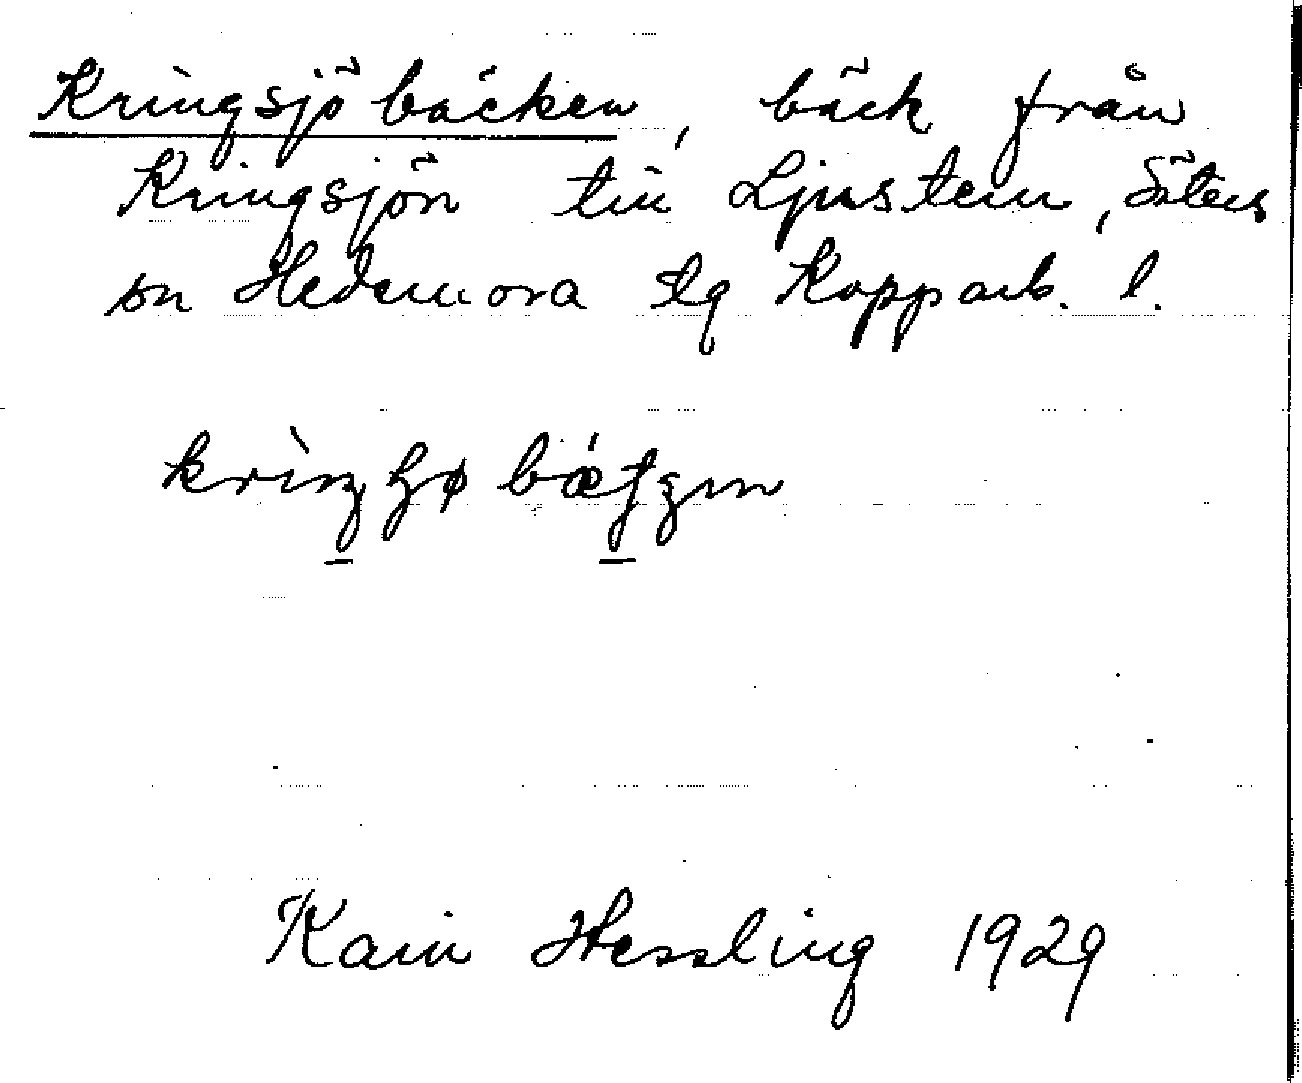 Kringsjöbäcken, bäck från
Kringsjön till Ljustern, Säters
sn Hedemora tlg Kopparb. l.
Karin Hessling 1929